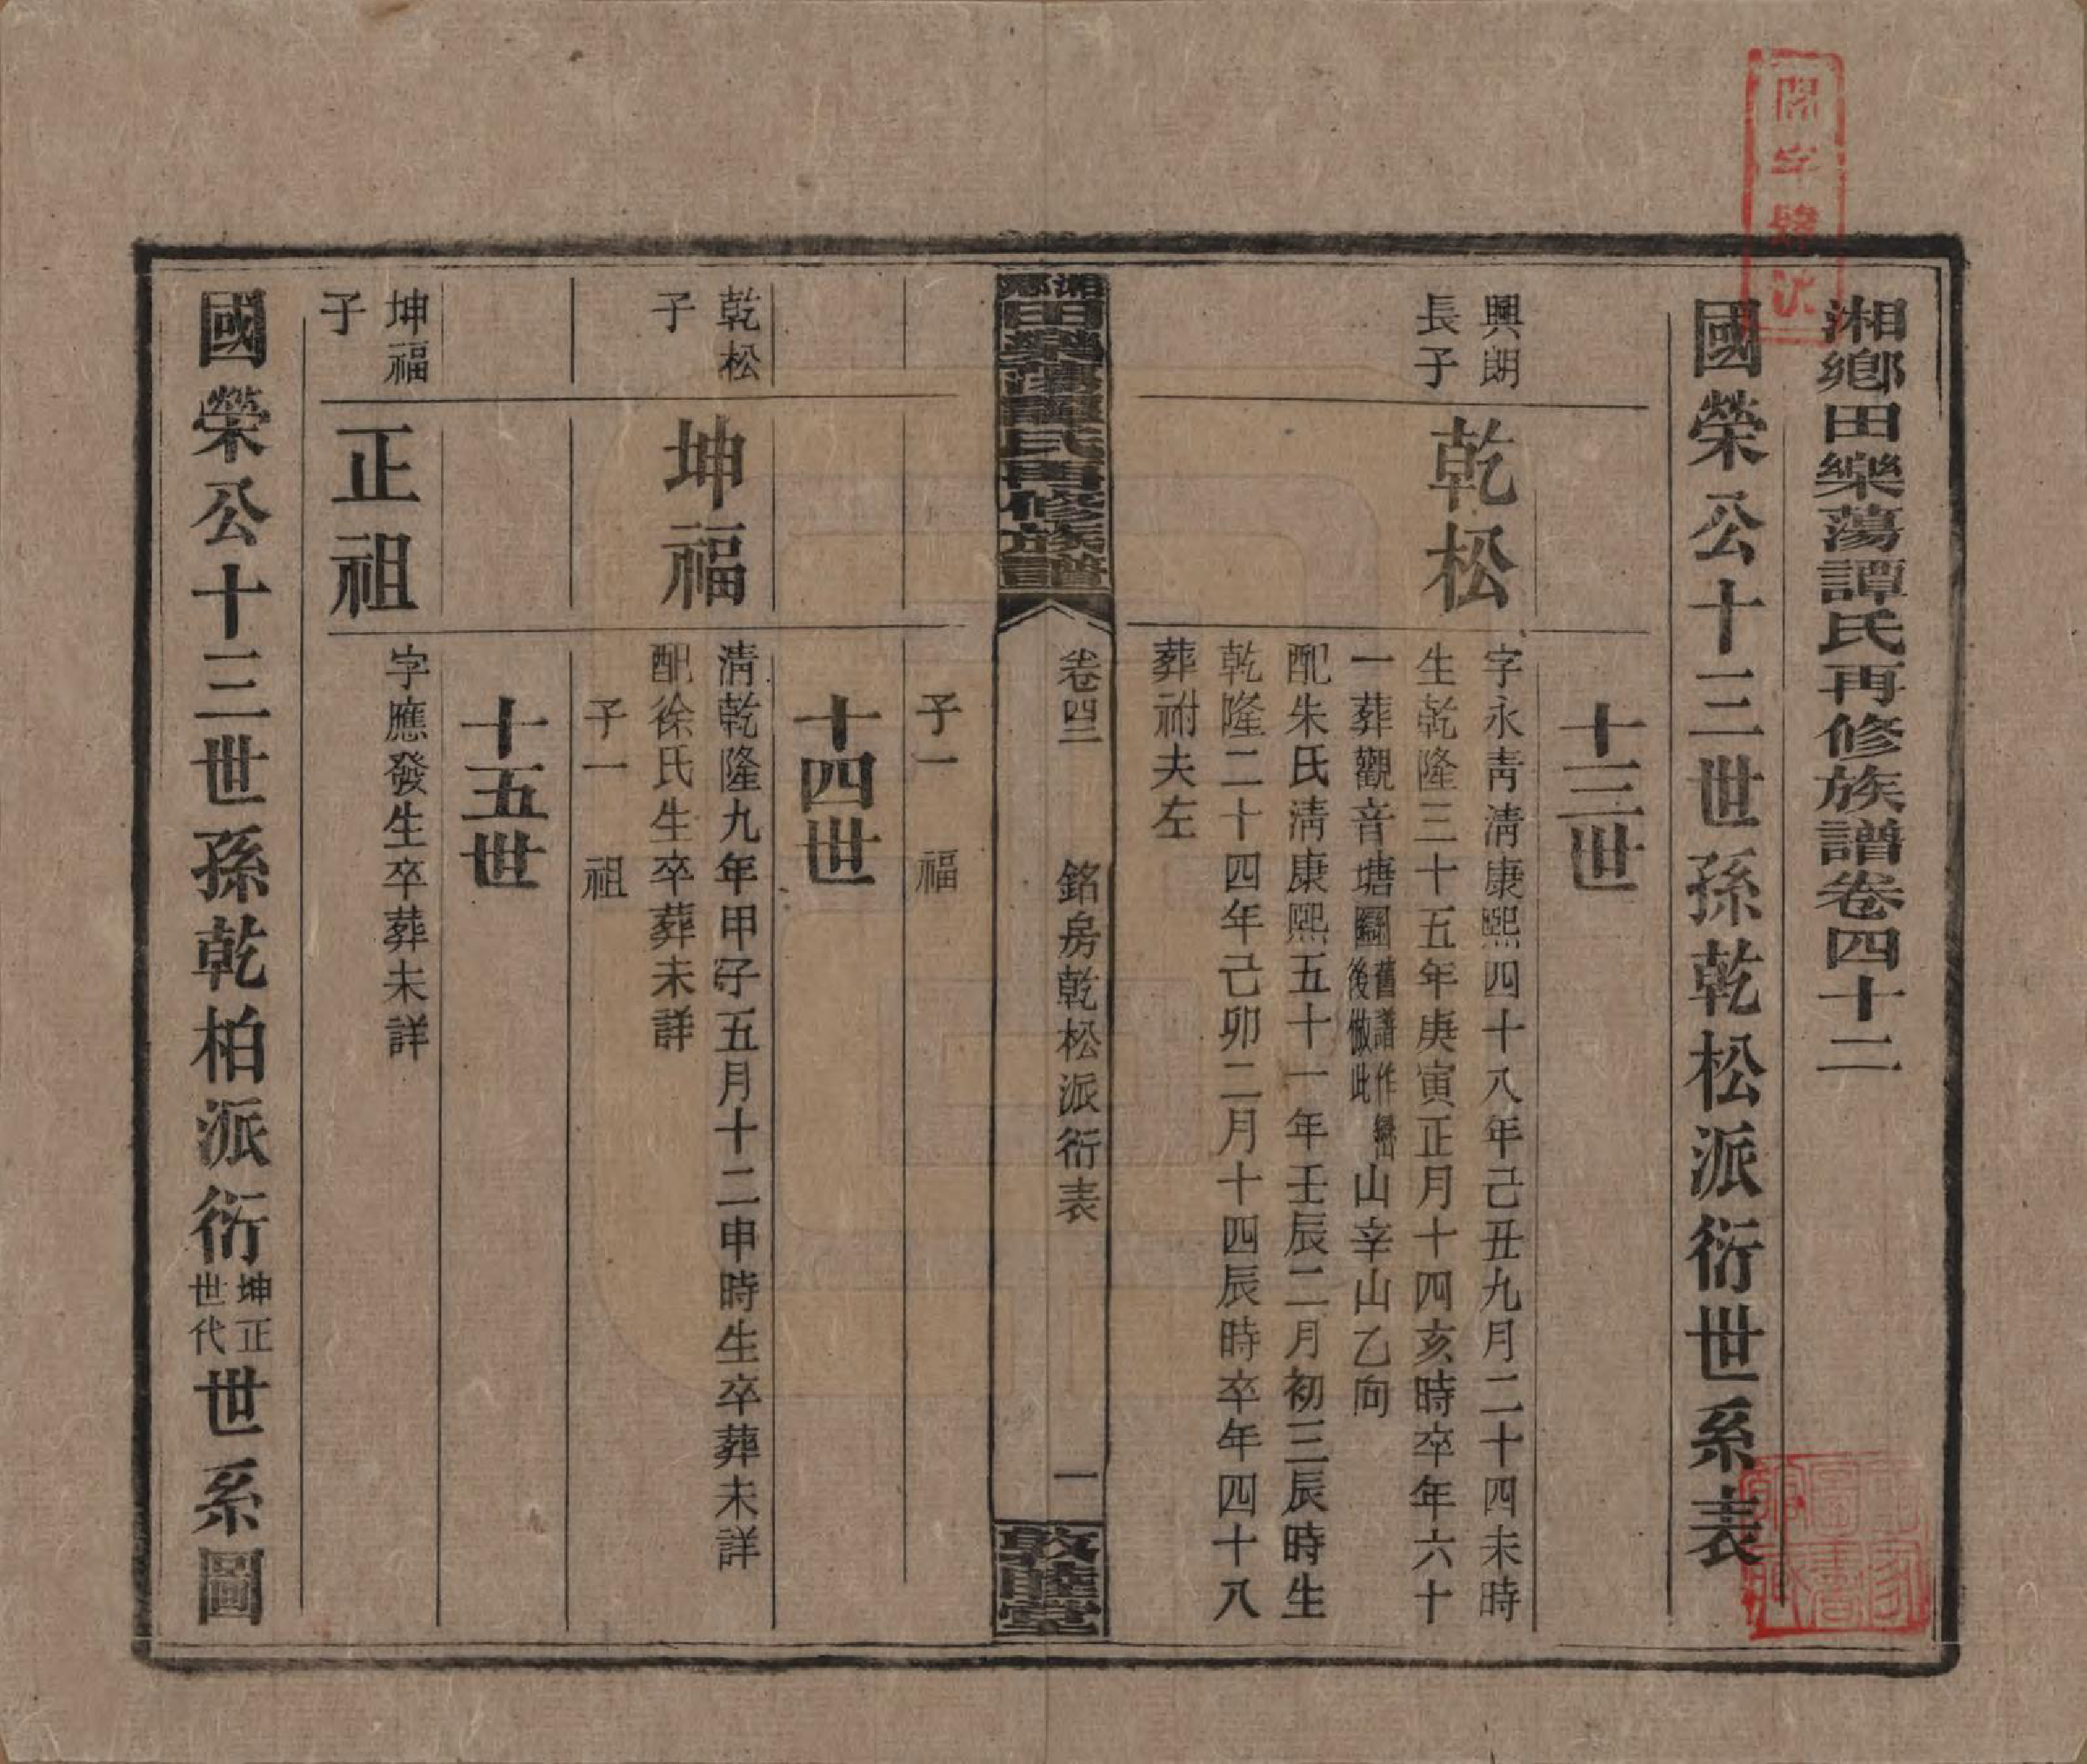 湘鄉田樂蕩譚氏再修族譜卷四十二
國榮公十三世孫乾松派衍世系表
十三世
興朗
長子
乾松
字永青清康熙四十八年己丑九月二十四未時
生乾隆三十五年庚寅正月十四亥時卒年六十
一葬觀音塘
舊譜作
後倣此
山辛山乙向
配朱氏清康熙五十一年壬辰二月初三辰時生
乾隆二十四年己卯二月十四辰時卒年四十八
葬祔夫左
湘鄉
田樂蕩譚氏再修族譜
卷四二
銘房乾松派衍表
一
敦睦堂
子一 福
十四世
乾松
子
坤福
清乾隆九年甲子五月十二申時生卒葬未詳
配徐氏生卒葬未詳
子一 祖
十五世
坤福
子
正祖
字應發生卒葬未詳
國榮公十三世孫乾柏派衍
坤正
世代
世系圖